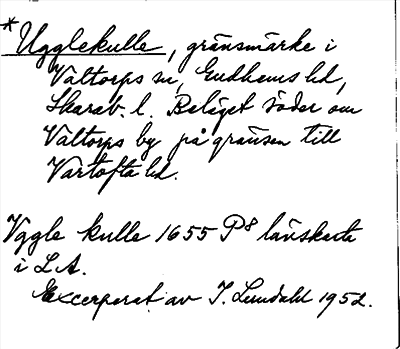 *Ugglekulle, gränsmärke i
Valtorps sn, Gudhems hd,
Skarab. l. Beläget söder om
Valtorps by på gränsen till
Vartofta hd.
Vggle kulle 1655 P8 länskarta
i L A.
Excerperat av I. Lundahl 1952.